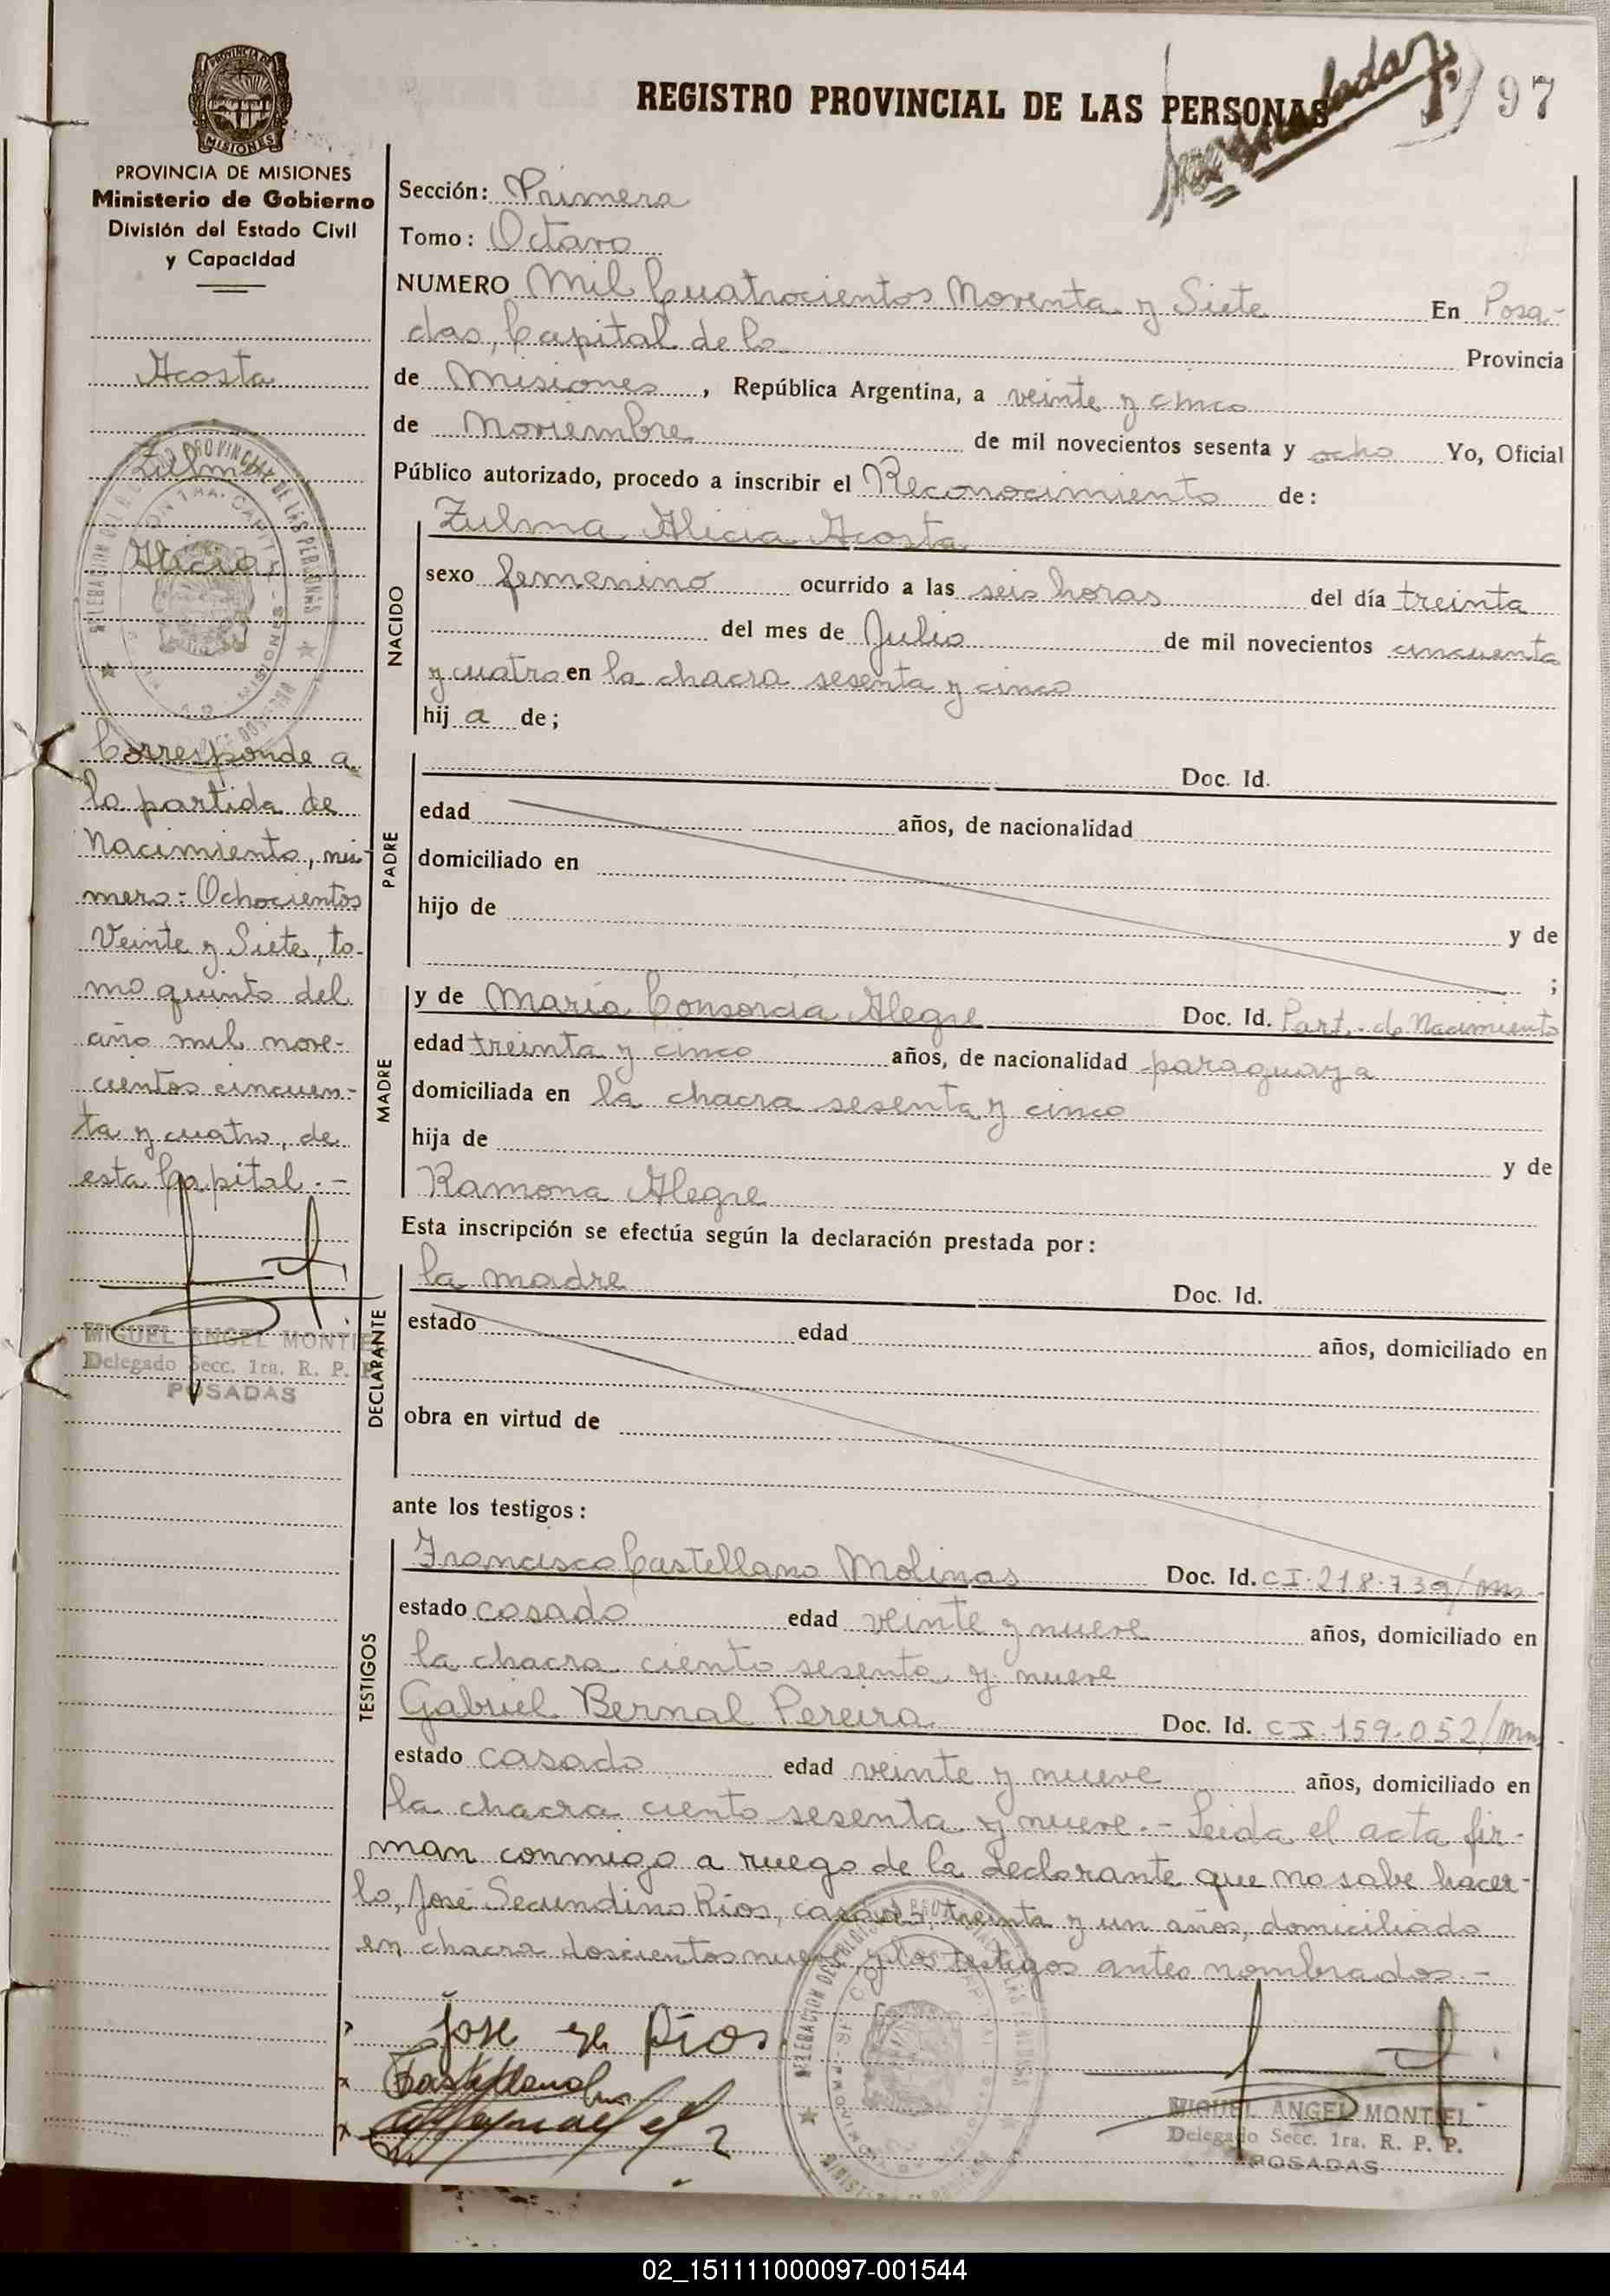 REGISTRO PROVINCIAL DE LAS PERSONAS
97
PROVINCIA DE MISIONES
Ministerio de Gobierno
División del Estado Civil
y Capacidad
Acosta
Zulma
Alicia
Corresponde a
la partida de
Nacimiento, nú-
mero: Ochocientos
Veinte y Siete, to-
mo quinto del
año mil nove-
cientos cincuen-
ta y cuatro, de
esta Capital.-
MIGUEL ANGEL MONTI
Delegado Secc. 1ra. R. P. P.
POSADAS
Sección: Primera
Tomo: Octavo
NUMERO Mil Cuatrocientos Noventa y Siete En Posa-
das, Capital de la Provincia
de Misiones, República Argentina, a veinte y cinco
de Noviembre de mil novecientos sesenta y ocho Yo, Oficial
Público autorizado, procedo a inscribir el Reconocimiento de:
NACIDO
Zulma Alicia Acosta
sexo femenino ocurrido a las seis horas del día treinta
del mes de Julio de mil novecientos cincuenta
y cuatro en la chacra sesenta y cinco
hija de;
PADRE
Doc. Id.
edad años, de nacionalidad
domiciliado en
hijo de y de
;
MADRE
y de María Consorcia Alegre Doc. Id. Part. de Nacimiento
edad treinta y cinco años, de nacionalidad paraguaya
domiciliada en la chacra sesenta y cinco
hija de y de
Ramona Alegre
Esta inscripción se efectúa según la declaración prestada por:
DECLARANTE
la madre Doc. Id.
estado edad años, domiciliado en
obra en virtud de
ante los testigos:
TESTIGOS
Francisco Castellano Molinas Doc. Id. CI. 218.739/Mns
estado casado edad veinte y nueve años, domiciliado en
la chacra ciento sesenta y nueve
Gabriel Bernal Pereira Doc. Id. CI. 159.052/Mn
estado casado edad veinte y nueve años, domiciliado en
la chacra ciento sesenta y nueve.- Leida el acta fir-
man conmigo a ruego de la declarante que no sabe hacer-
lo, José Secundino Ríos, casado, treinta y un años, domiciliado
en chacra doscientos nueve, y los testigos antes nombrados.-
Jose Se Ríos
MIGUEL ANGEL MONTIEL
Delegado Secc. 1ra. R. P. P.
POSADAS
02_151111000097-001544